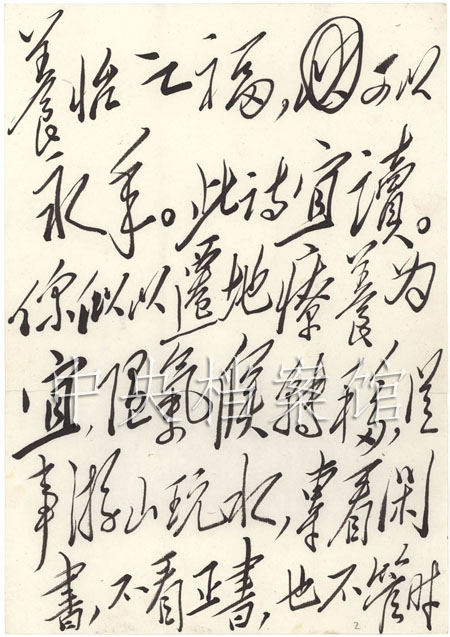 養怡之福，可以
永年。此诗宜讀。
你似以遷地療養为
宜，随氣候轉移，從
事游山玩水，專看闲
書，不看正書，也不管时
中央档案馆
2